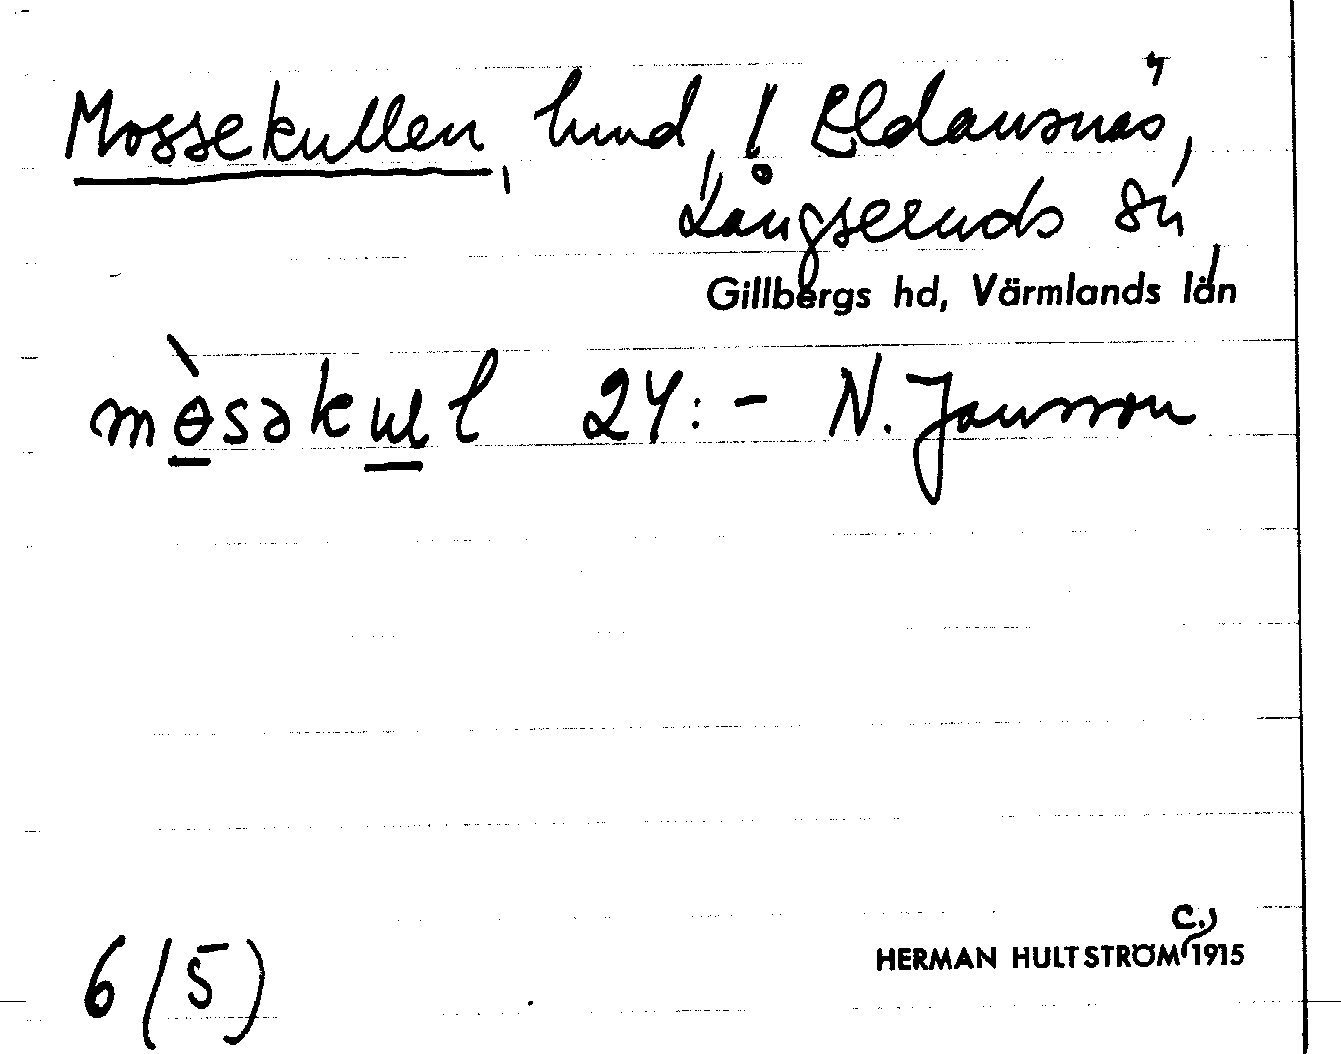 Mossekullen, hmd, i Eldansnäs,
Långseruds sn,
Gillbergs hd, Värmlands län
mɵ̀səkul l 24:- N. Jansson
C.,
HERMAN HULTSTRÖM 1915
6 (5)